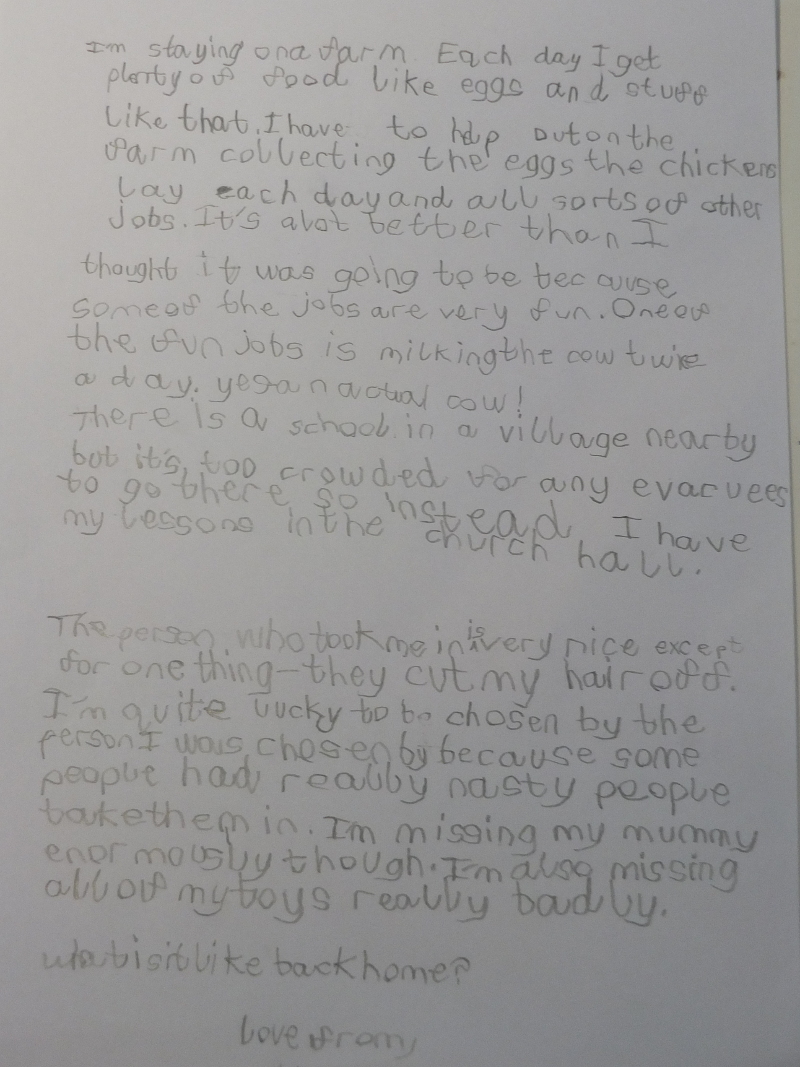 Im staying on a farm. Each day I get
plenty of food like eggs and stuff
like that. I have to help out on the
farm collecting the eggs the chickens
lay each day and all sorts of other
jobs. It's alot better than I
thought it was going to be because
some of the jobs are very fun. One of
the fun jobs is milking the cow twice
a day. yes an actual cow!
There is a school in a village nearby
but it's too crowded for any evacuees
to go there so instead I have
my lessons in the church hall.
The person who took me in is very nice except
for one thing - they cut my hair off.
I'm quite lucky to be chosen by the
person I was chosen by because some
people had really nasty people
take them in. Im missing my mummy
enormously though. I'm also missing
all of my toys really badly.
what is it like back home?
love from,